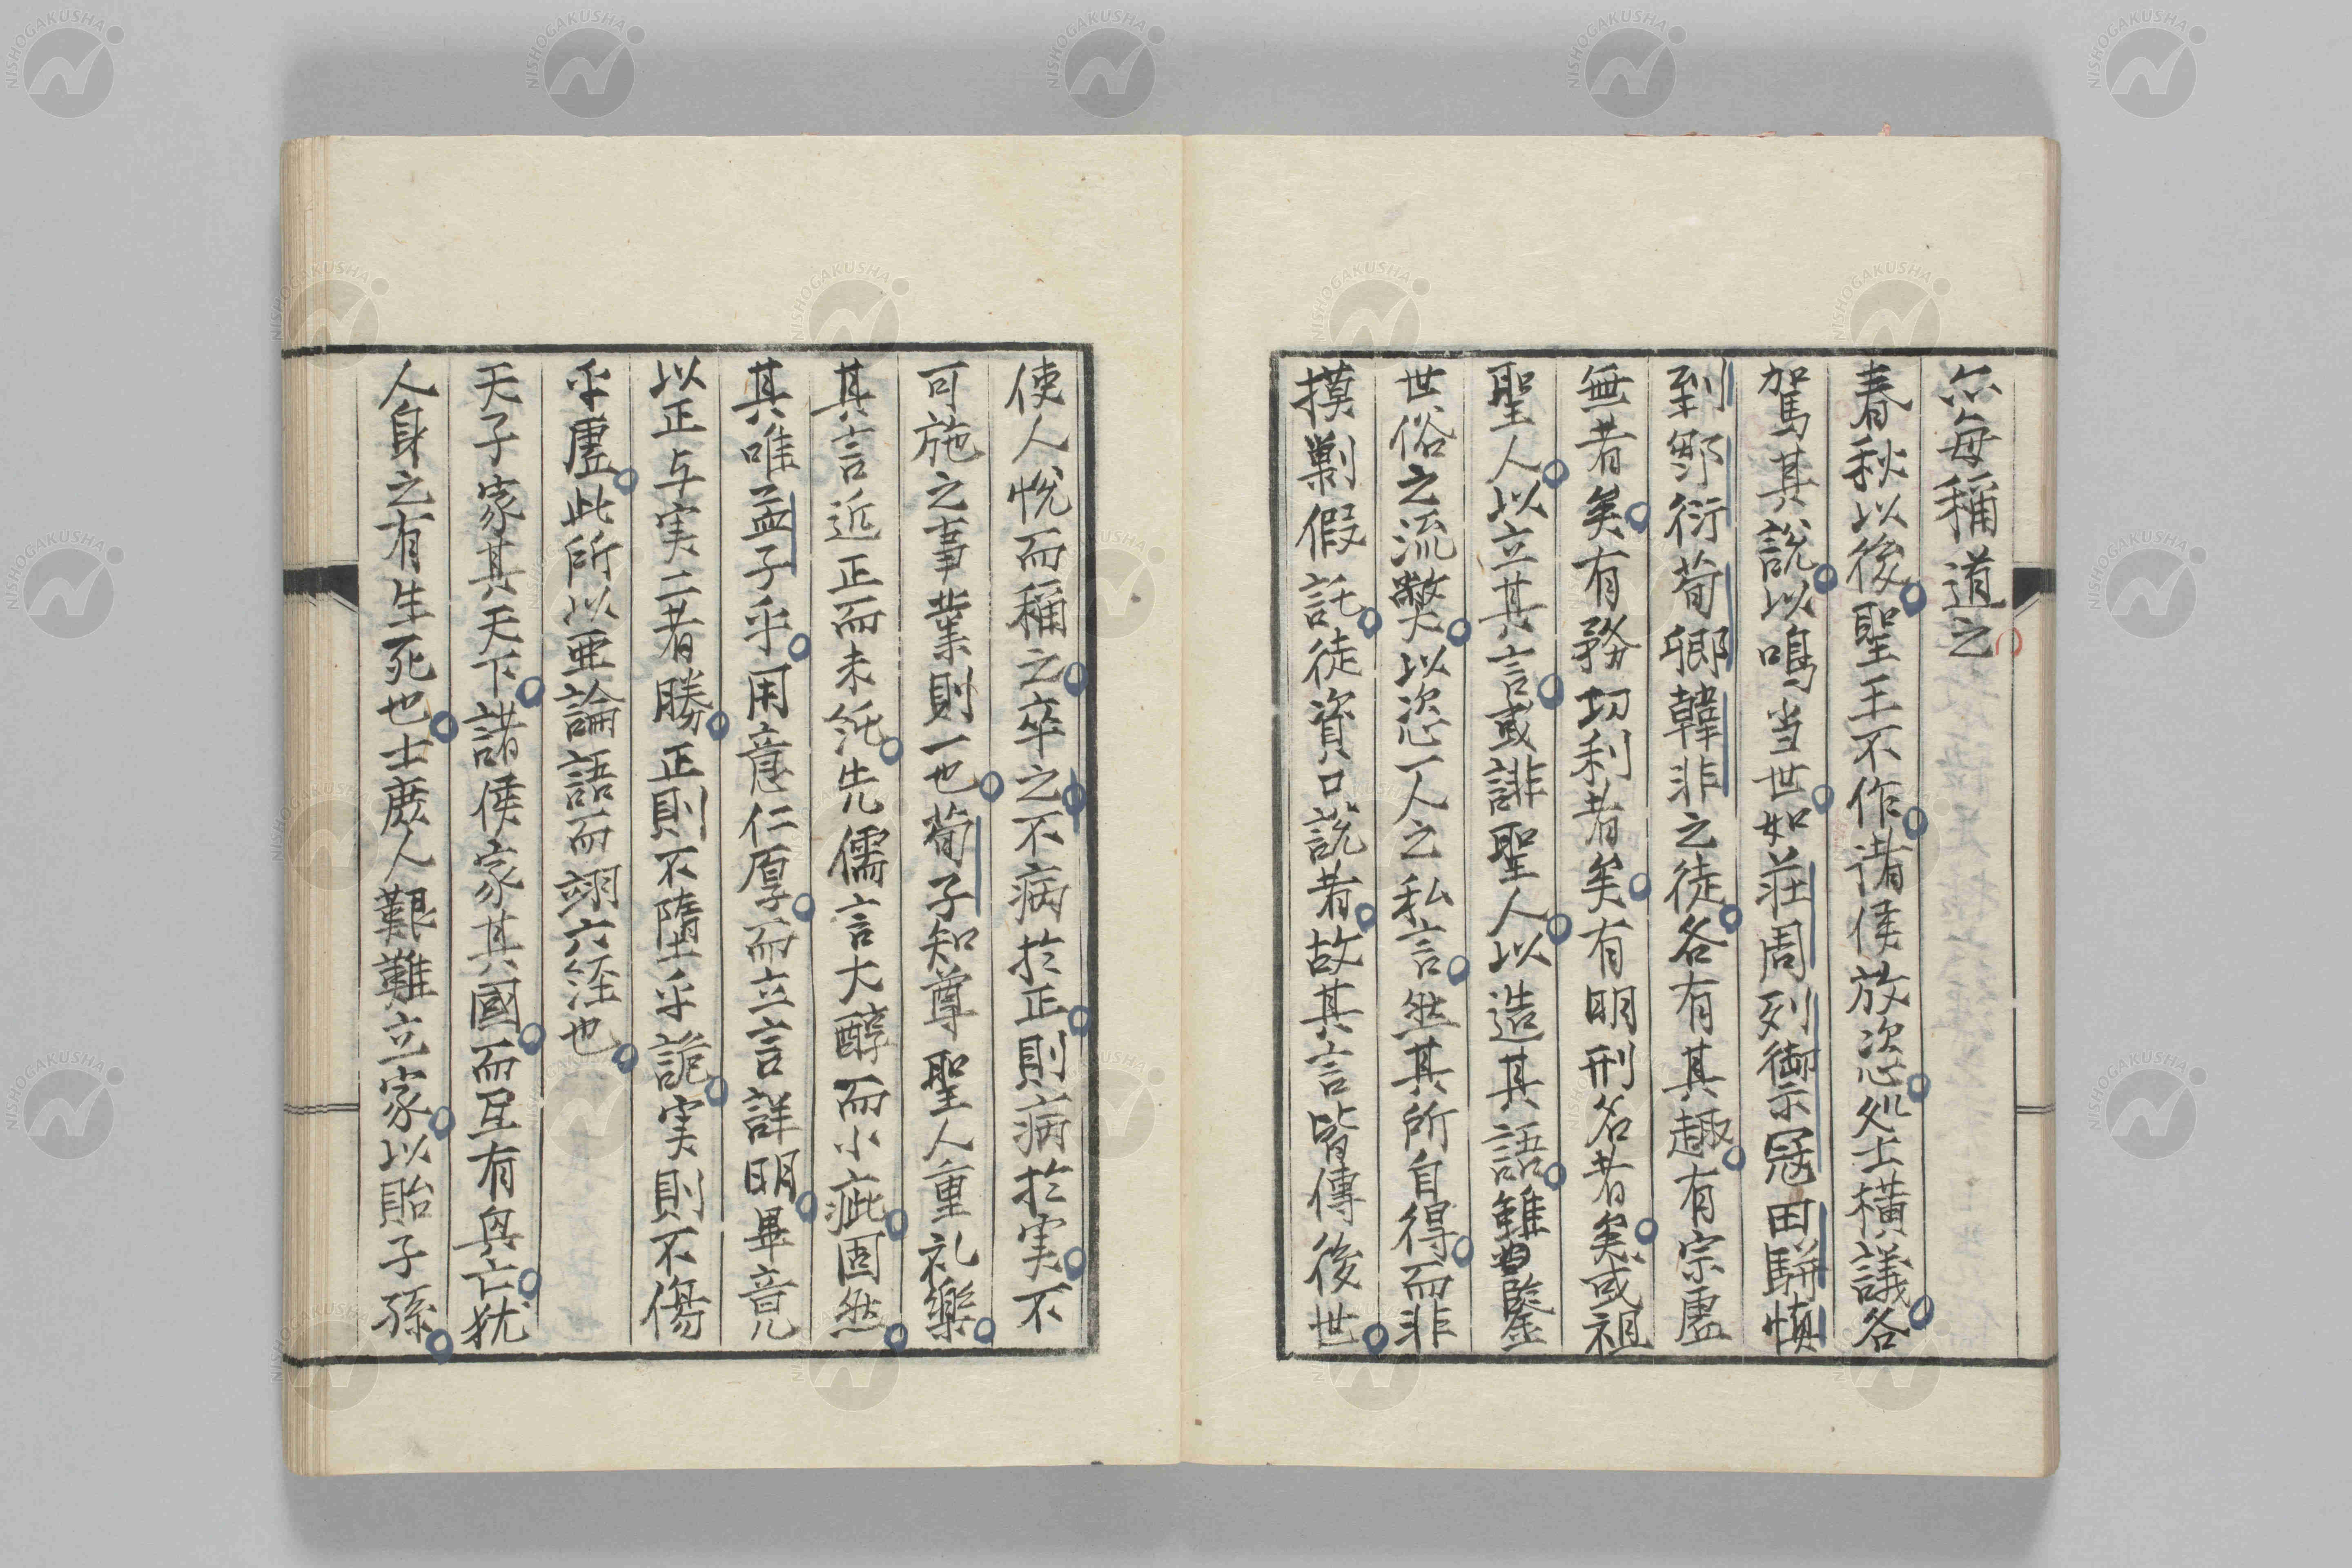 尔毎稱道之
春秋以後聖王不作諸侯放恣処士横議各
駕其説以鳴当世如荘周列御冦田駢慎
到鄒衍荀卿韓非之徒各有其趣有宗虚
無者矣有務切利者矣有明刑名者矣或祖
聖人以立其言或誹聖人以造其語雖曲鑿
世俗之流弊以恣一人之私言然其所自得而非
摸剿假託徒資口説者故其言皆傳後世
使人悦而稱之卒之不病於正則病於実不
可施之事業則一也荀子知尊聖人重礼樂
其言近正而未純先儒言大醇而小疵固然
其唯孟子乎用意仁厚而立言詳明畢竟
以正与実二者勝正則不墮乎詭実則不傷
乎虚此所以亜論語而翊六経也
天子家其天下諸侯家其國而互有興亡犹
人身之有生死也士庶人艱難立家以貽子孫
NISHOGAKUSHA